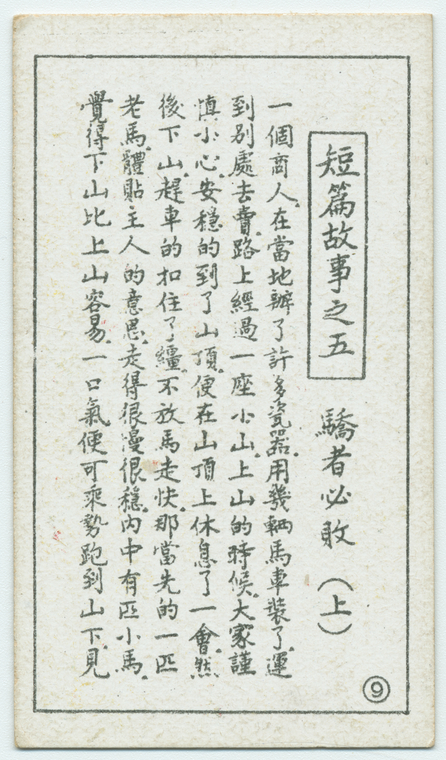 短篇故事之五
驕者必敗（上）
一個商人。在當地辦了許多瓷器。用幾輛馬車裝了。運
到别處去賣。路上經過一座小山。上山的時候。大家謹
慎小心。安穩的到了山頂。便在山頂上休息了一會。然
後下山。趕車的扣住了韁。不放馬走快。那當先的一匹
老馬。體貼主人的意思。走得很慢很穩。內中有匹小馬。
覺得下山比上山容易。一口氣便可乘勢跑到山下。見
⑨